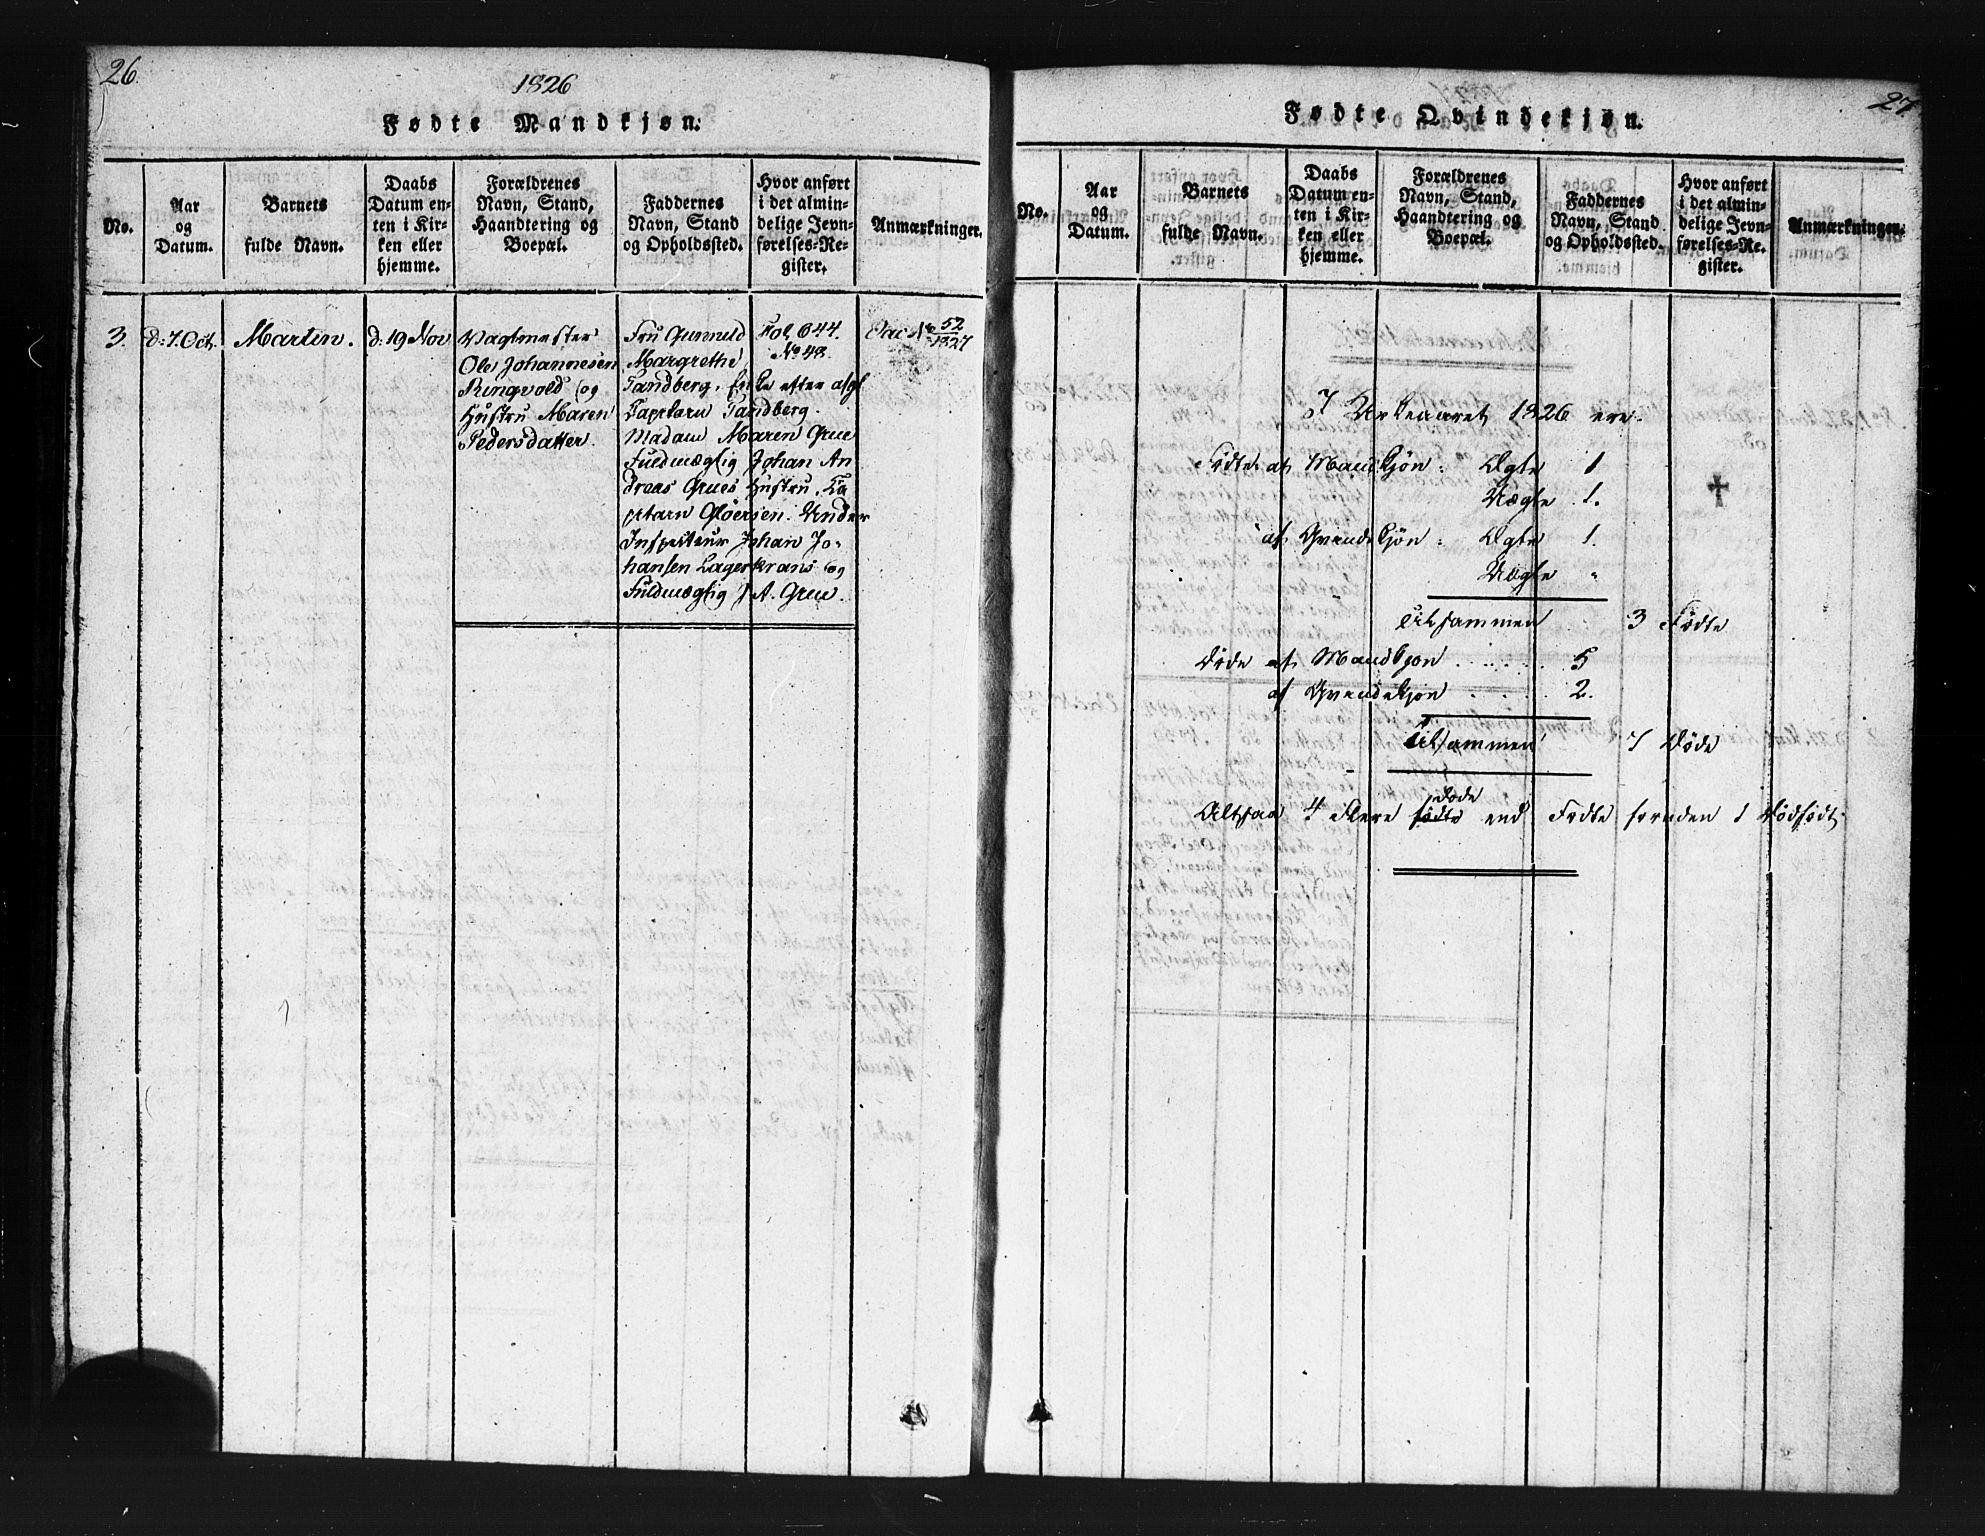 26.
1826
Fødte Mandkjøn.
No.
Aar
og
Datum.
Barnets
fulde Navn.
Daabs
Datum en-
ten i Kir-
ken eller
hjemme.
Forældrenes
Navn, Stand,
Haandtering og
Boepæl.
Faddernes
Navn, Stand
og Opholdssted.
Hvor anført
i det almin-
delige Jevn-
førelses-Re-
gister.
Anmærkninger.
3
d: 7. Oct.
Martin.
d: 19 Nov
Vagtmester
Ole Johannesen
Ringvold og
Hustru Maren
Pedersdatter.
Fru Gunnild
Margrethe
Tandberg, Enke efter afg.
Capitain Tandberg.
Madam Maren Grue
Fuldmægtig Johan An
dreas Grues Hustru. Ca
pitain Gløersen. Under
Inspecteur Johan Jo-
hansen Lagerkrans og
Fuldmægtig J A. Grue.
Fol 644.
No 48.
Vac No 52
1827
27.
Fødte Qvindekjøn.
No.
Aar
og
Datum.
Barnets
fulde Navn.
Daabs
Datum en-
ten i Kir-
ken eller
hjemme.
Forældrenes
Navn, Stand,
Haandtering og
Boepæl.
Faddernes
Navn, Stand
og Opholdssted.
Hvor anført
i det almin-
delige Jevn-
førelses-Re-
gister.
Anmærkninger.
I Kirkeaaret 1826 ere.
Fødte af Mandkjøn: Ægte 1
Uægte 1.
af Qvindekjøn: Ægte 1.
Uægte "
Tilsammen 3 Fødte
Døde af Mandkjøn ...... 5
af Qvindekjøn ..... 2.
Tilsammen 7 Døde
døde
Altsaa 4 flere fødte end Fødte foruden 1 Dødfødt.